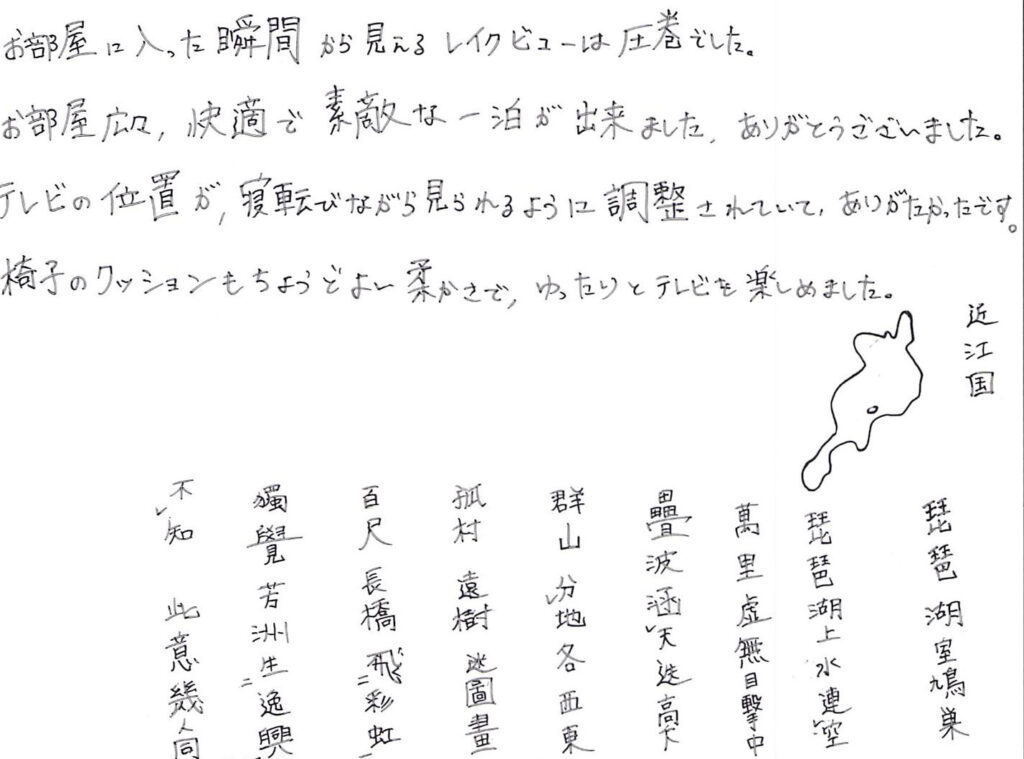 お部屋に入った瞬間から見えるレイクビューは圧巻でした。
お部屋広々,快適で素敵な一泊が出来ました,ありがとうございました。
テレビの位置が,寝転びながら見られるように調整されていて,ありがたかったです。
椅子のクッションもちょうどよい柔かさで,ゆったりとテレビを楽しめました。
近江国
琵琶湖室鳩巣
琵琶湖上水連空
萬里虚無目撃中
疊波涵レ天迭高下
群山分レ地各西東
孤村遠樹迷圖畫
百尺長橋飛二彩虹一
獨覺芳洲生二逸興一
不レ知此意幾人同